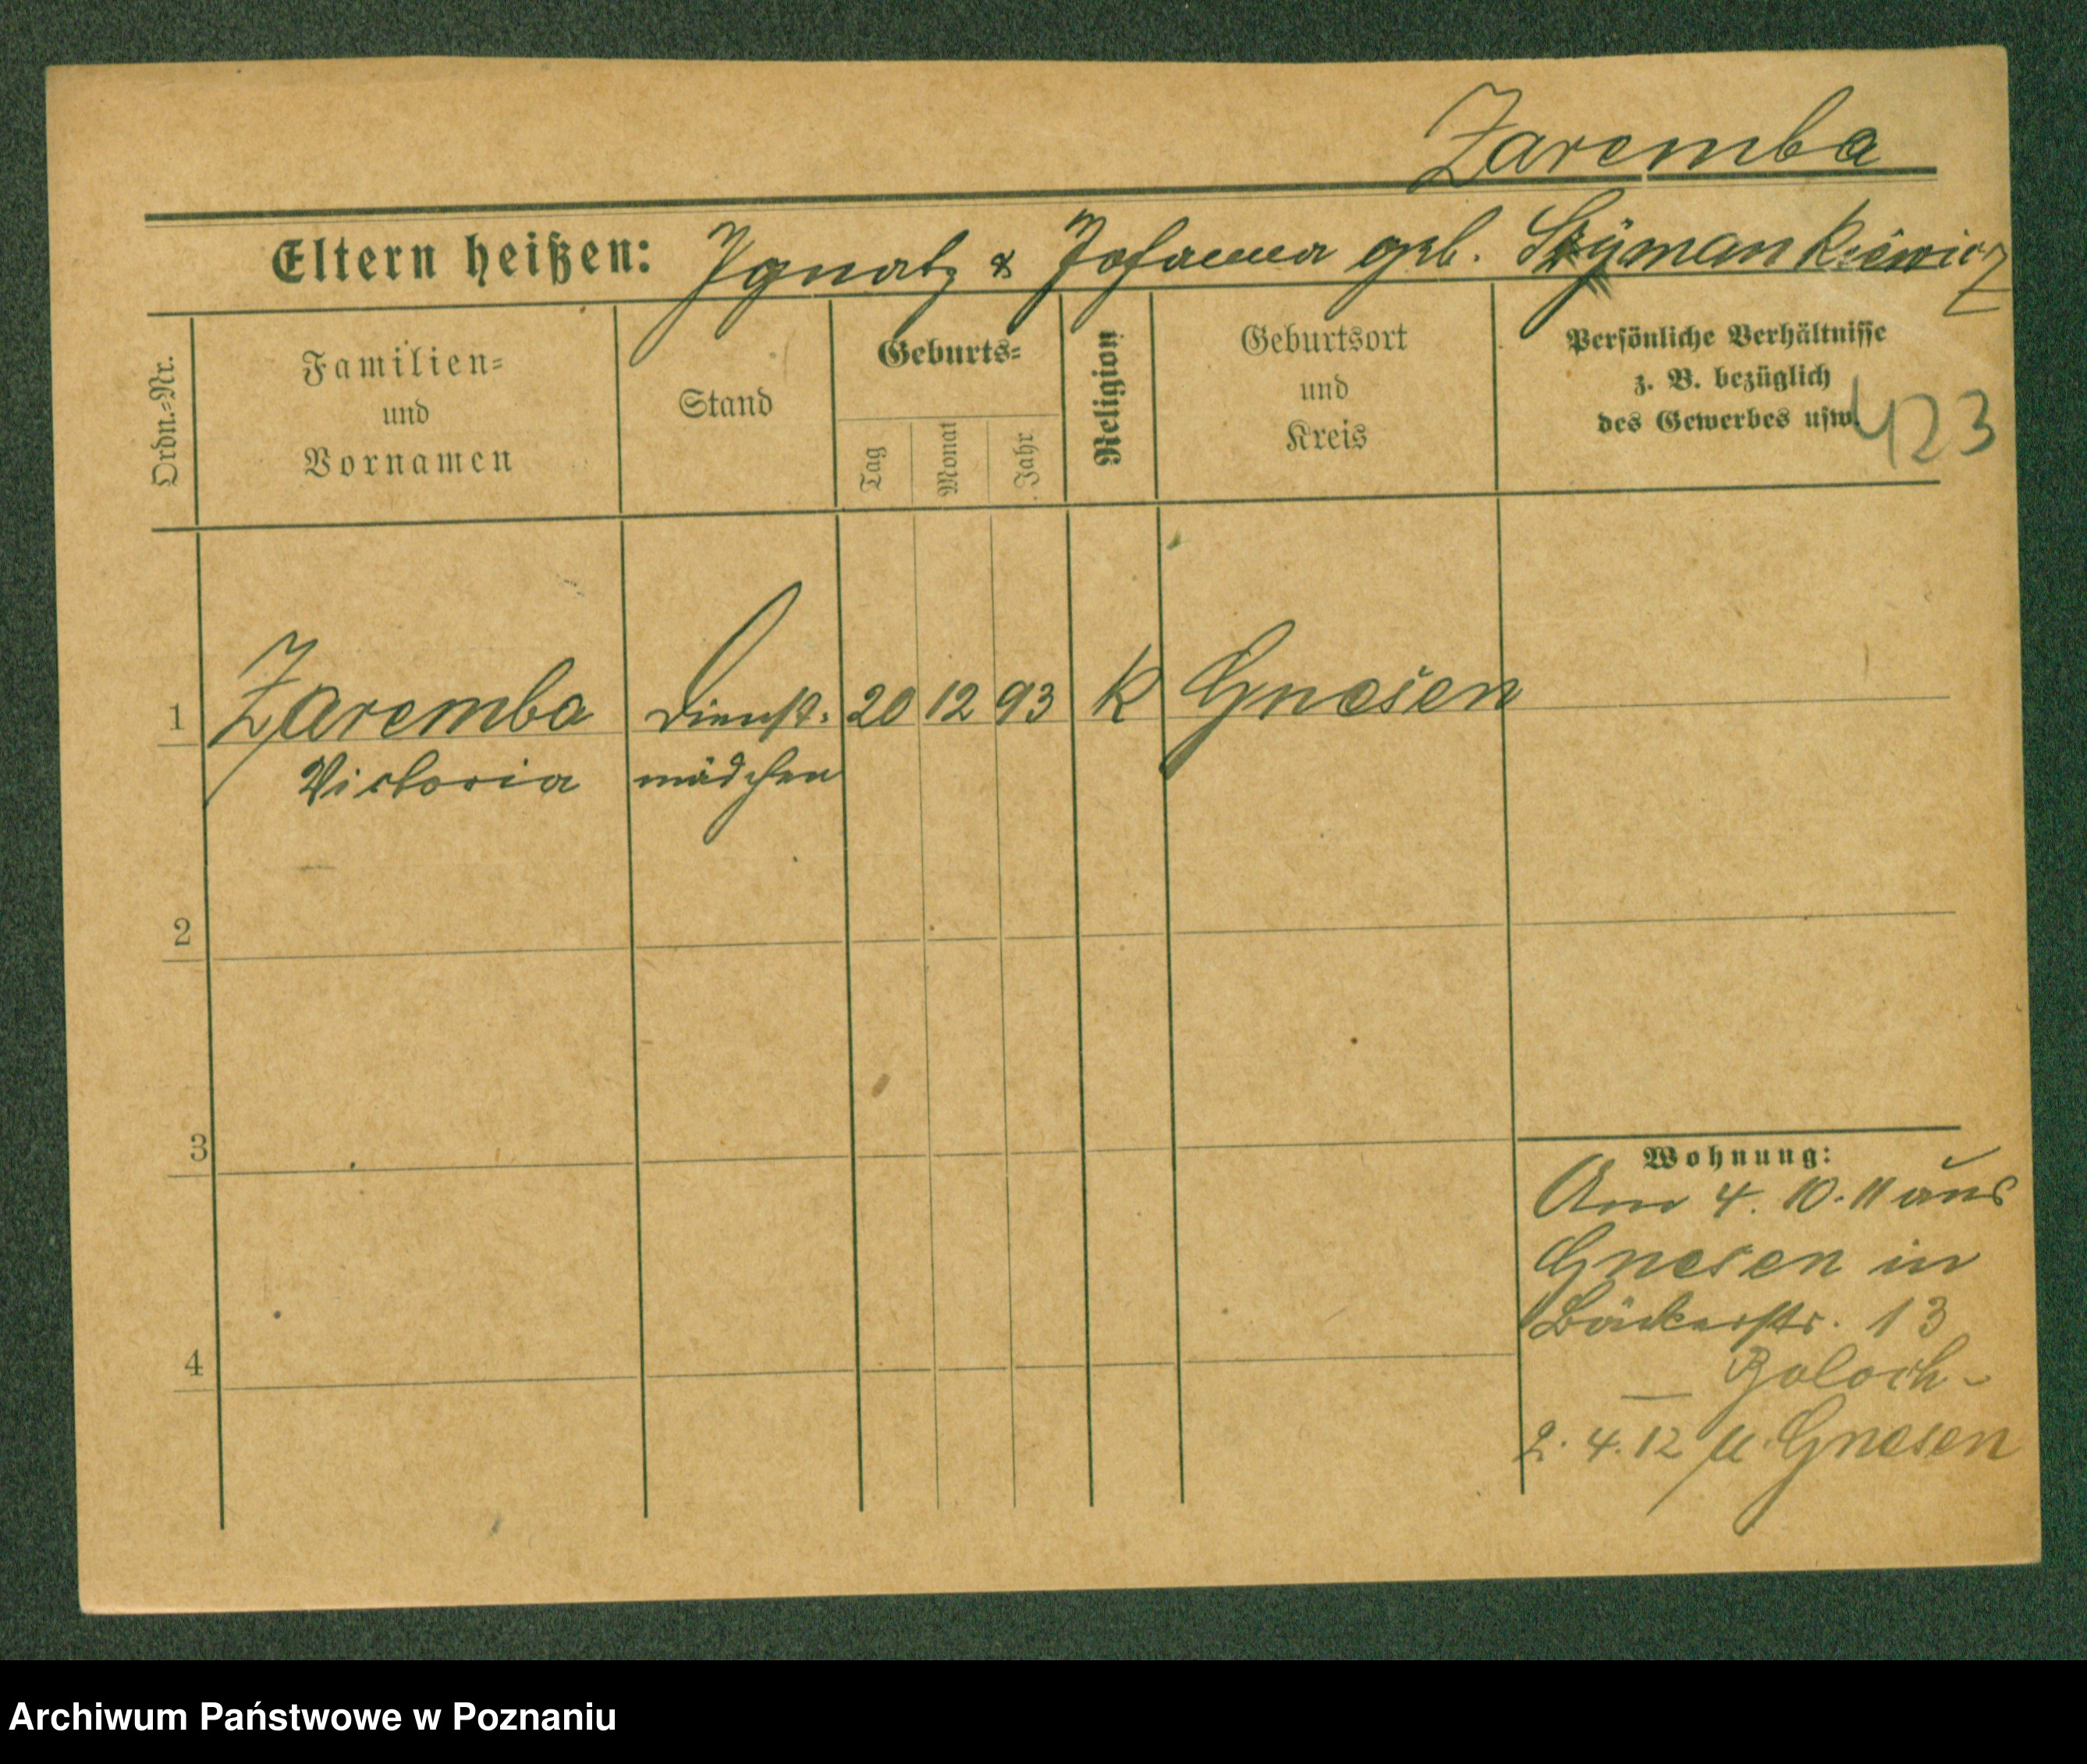 Zaremba
Eltern heißen: Ignatz & Johanna geb. Szymankiewicz
Ordn.=Nr.
Familien=
und
Vornamen
Stand
Geburts=
Tag
Monat
Jahr
Religion
Geburtsort
und
Kreis
Persönliche Verhältnisse
z. B. bezüglich
des Gewerbes usw.
423
1 Zaremba Dienst= 20 12 93 K Gnesen
Victoria mädchen
2
3
4
Wohnung:
Am 4. 10. 11 aus
Gnesen in
Bäckerstr. 13
2. 4. 12 n. Gnesen
Archiwum Państwowe w Poznaniu